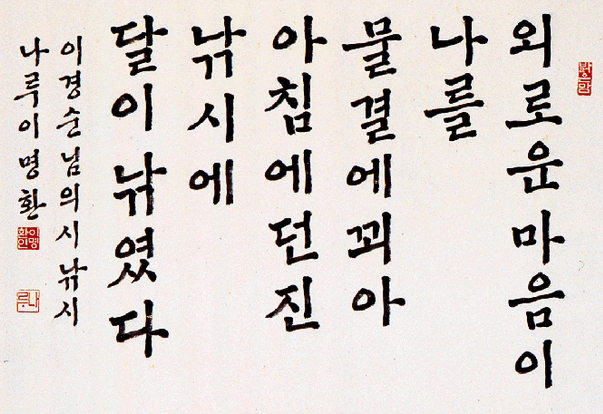 외로운마음이
나를
물결에꾀아
아침에던진
낚시에
달이낚였다
이경순님의시낚시
나루이명환